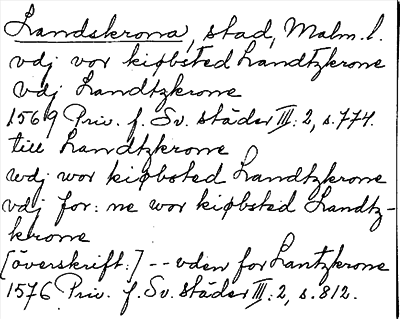 Landskrona, stad, Malm. l.
vdj vor kiøbsted Landtzkrone
vdj Landtzkrone
1569 Priv. f. Sv. städer III: 2, s. 774.
till Landtzkrone
wdj wor kiøbsted Landtzkrone
vdj for: ne wor kiøbsted Landtz-
krone
[överskrift:] -- vden for Lantzkrone
1576 Priv. f. Sv. städer III: 2, s. 812.